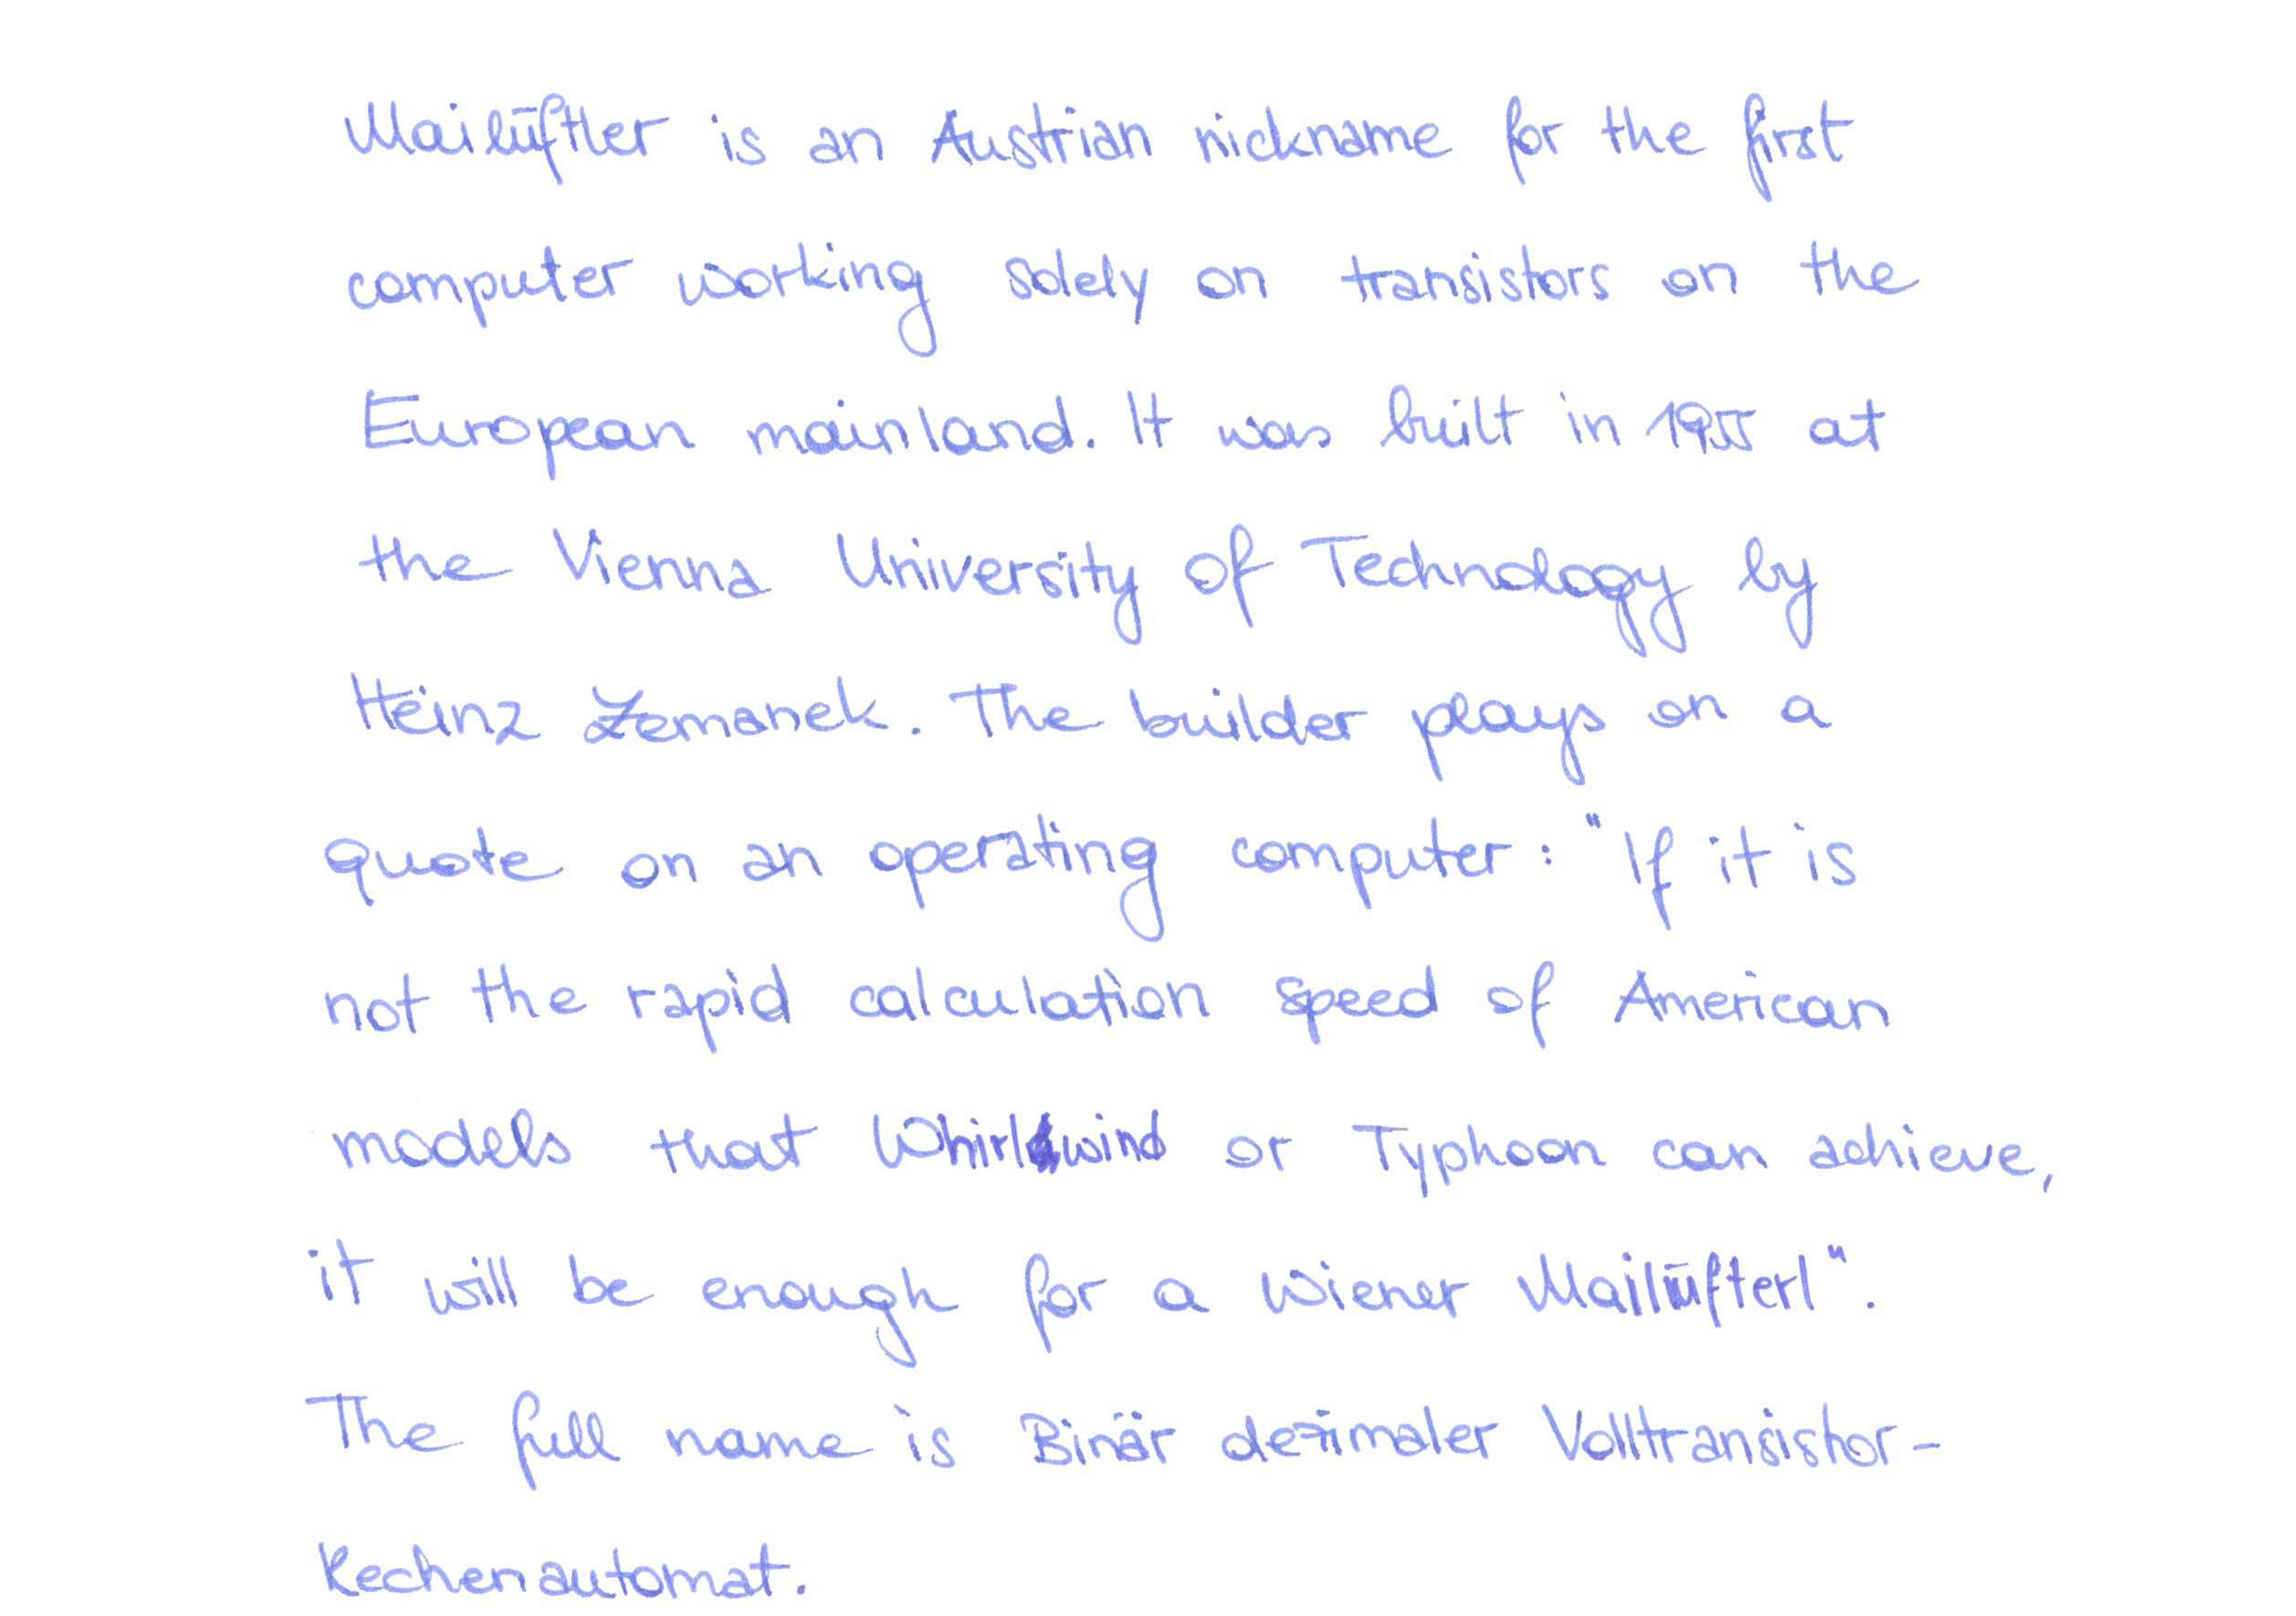 Mailüftler is an Austrian nickname for the first
computer working solely on transistors on the
European mainland. It was built in 1955 at
the Vienna University of Technology by
Heinz Zemanek. The builder plays on a
quote on an operating computer: "If it is
not the rapid calculation speed of American
models that Whirlwind or Typhoon can achieve,
it will be enough for a Wiener Mailüfterl".
The full name is Binär dezimaler Volltransistor-
Rechenautomat.